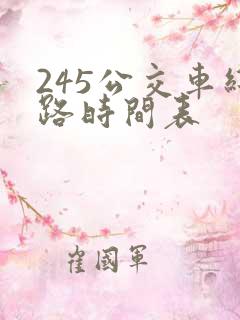 245公交車線
路時間表
崔國軍